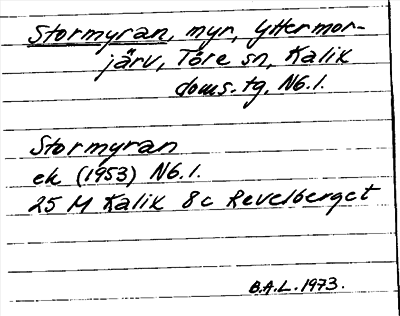 Stormyran, myr, Yttermor-
järv, Töre sn, Kalix
doms. tg, Nb.l.
Stormyran
ek (1953) Nb.l.
25 M Kalix 8c Revelberget
B.A.L. 1973.